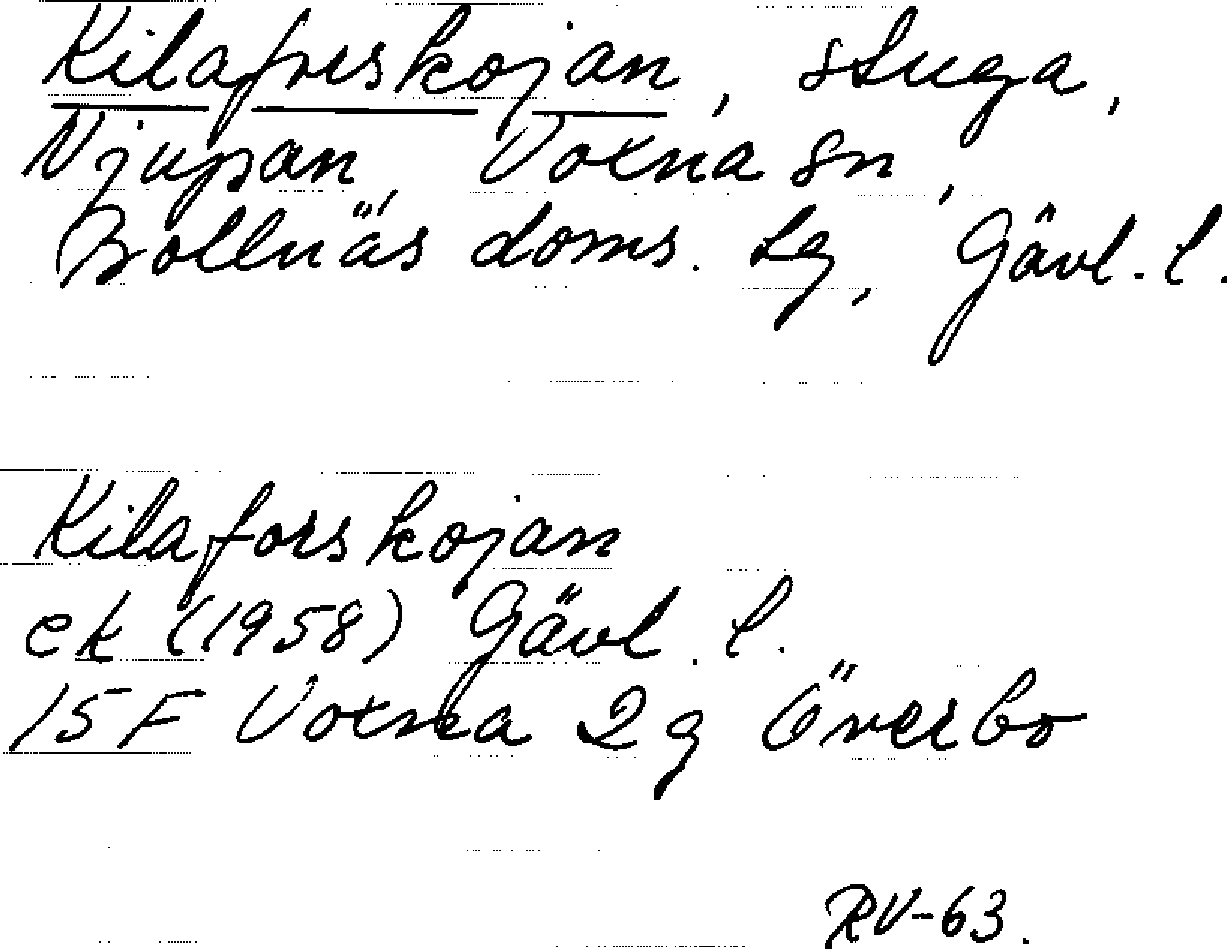 Kilaforskojan, stuga,
Njupan, Voxna sn,
Bollnäs doms. lg, Gävl. l.
Kilaforskojan
ek (1958) Gävl. l.
15 F Voxna 2 g Överbo
RV-63.